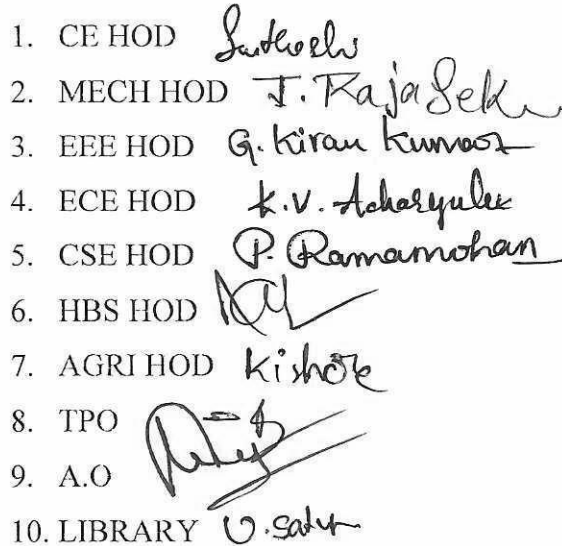 1. CE HOD Santhoshi
2. MECH HOD J. RajaSek
3. EEE HOD G. Kiran Kumar
4. ECE HOD K.V. Acharyulu
5. CSE HOD P. Ramamohan
6. HBS HOD
7. AGRI HOD Kishore
8. TPO
9. A.O
10. LIBRARY